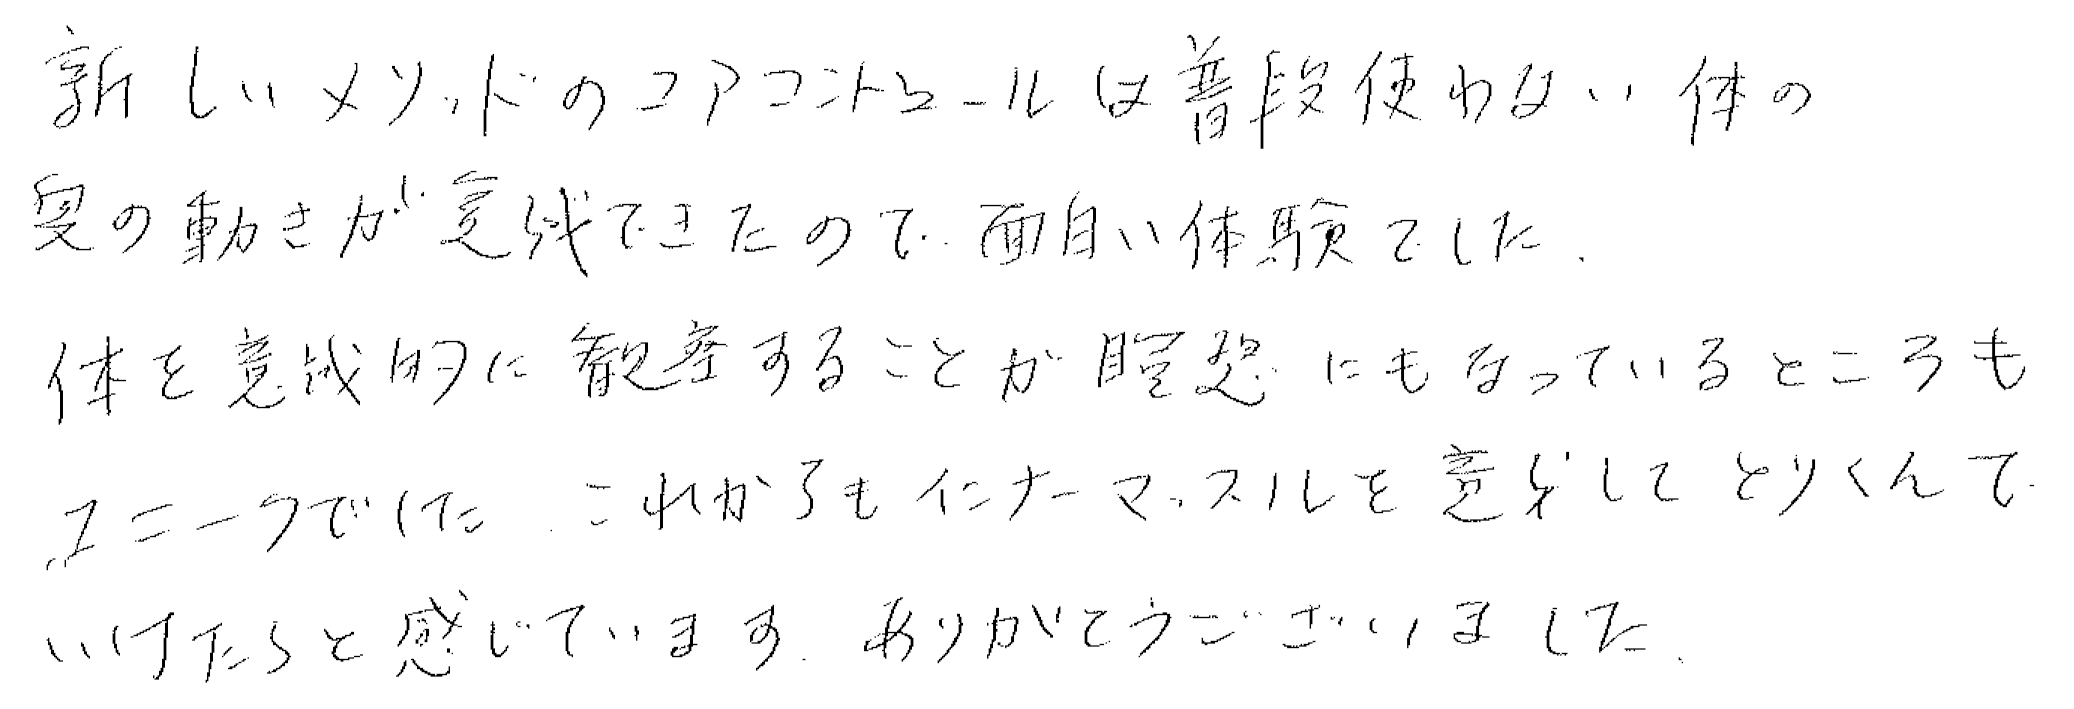 新しいメソッドのコアコントロールは普段使わない体の
奥の動きが意識できたので面白い体験でした.
体を意識的に観察することが瞑想にもなっているところも
ユニークでした.これからもインナーマッスルを意識してとりくんで
いけたらと感じています.ありがとうございました.